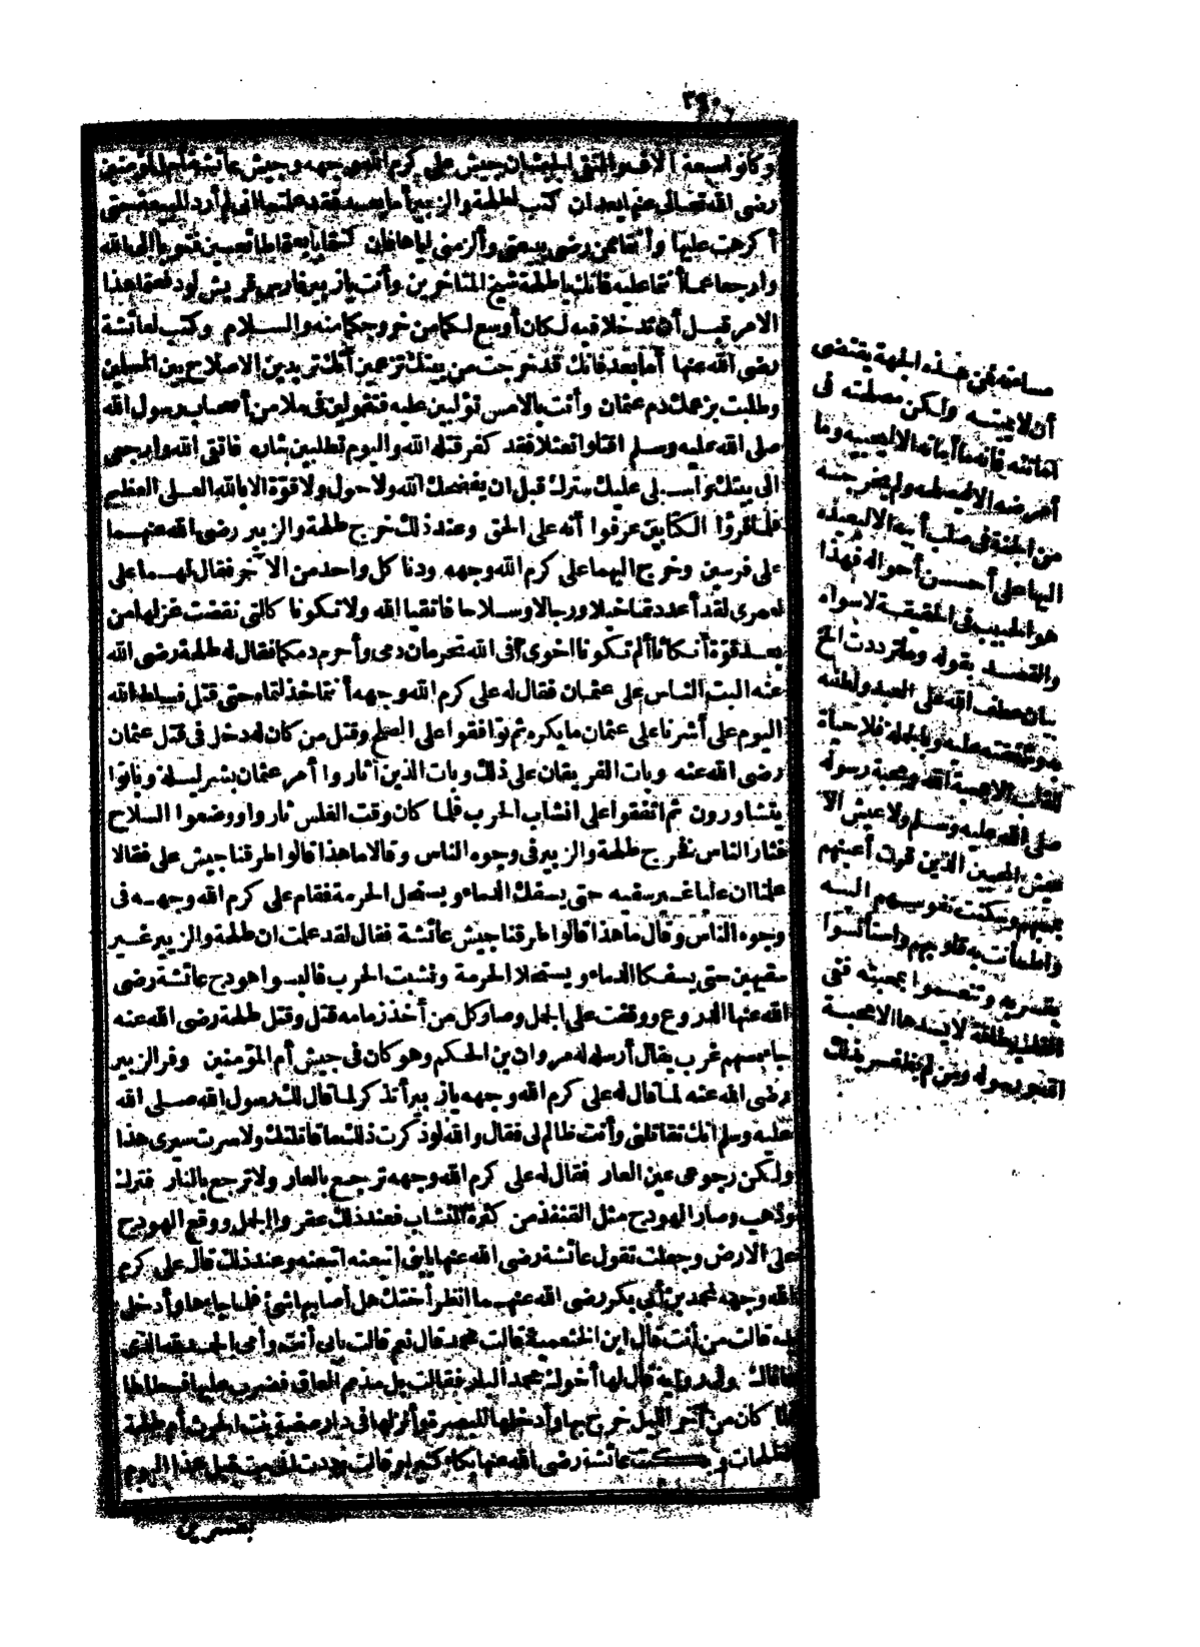 ٣٤٠
وكانوا تسعة آلاف والتقى الجيشان جيش على كرم الله وجهه وجيش عائشة أم المؤمنين
رضى الله تعالى عنها بعد ان كتب لطلحة والزبير أما بعد فقد علمتما انى لم أرد البيعة حتى
أكرهت عليها وأنتما ممن رضى ببيعتى وألزمنى اياها فان كنتما بايعتما طائعين فتوبا الى الله
وارجعا عما أنتما عليه فانك ياطلحة شيخ المهاجرين وأنت يازبير فارس قريش لو دفعتما هذا
الامر قبل أن تدخلا فيه لكان أوسع لكما من خروجكما منه والسلام وكتب لعائشة
رضى الله عنها أما بعد فانك قد خرجت من بيتك تزعمين أنك تريدين الاصلاح بين المسلمين
وطلبت بزعمك دم عثمان وأنت بالامس تؤلبين عليه فتقولين فى ملا من أصحاب رسول الله
صلى الله عليه وسلم اقتلوا نعثلا فقد كفر قتله الله واليوم تطلبين بثاره فاتقى الله وارجعى
الى بيتك واسبلى عليك سترك قبل ان يفضحك الله ولا حول ولا قوة الا بالله العلى العظيم
فلما قرؤا الكتابين عرفوا أنه على الحق وعند ذلك خرج طلحة والزبير رضى الله عنهما
على فرسين وخرج اليهما على كرم الله وجهه ودنا كل واحد من الآخر فقال لهما على
لعمرى لقد أعددتما خيلا ورجالا وسلاحا فاتقيا الله ولا تكونا كالتى نقضت غزلها من
بعد قوة أنكاثا ألم تكونا اخوى فى الله تحرمان دمى وأحرم دمكما فقال له طلحة رضى الله
عنه البت الناس على عثمان فقال له على كرم الله وجهه أنتما خذلتماه حتى قتل فسلط الله
اليوم على أشرنا على عثمان ما يكره ثم توافقوا على الصلح وقتل من كان له دخل فى قتل عثمان
رضى الله عنه وبات الفريقان على ذلك وبات الذين أثاروا أمر عثمان بشر ليلة وباتوا
يتشاورون ثم اتفقوا على انشاب الحرب فلما كان وقت الغلس ثاروا ووضعوا السلاح
فثار الناس فخرج طلحة والزبير فى وجوه الناس وقالا ما هذا قالوا طرقنا جيش على فقالا
علمنا ان عليا غير سفيه حتى يسفك الدماء ويستحل الحرمة فقام على كرم الله وجهه فى
وجوه الناس وقال ما هذا قالوا طرقنا جيش عائشة فقال لقد علمت ان طلحة والزبير غير
سفيهين حتى يسفكا الدماء ويستحلا الحرمة ونشبت الحرب فالبسوا هودج عائشة رضى
الله عنها الدروع ووقفت على الجمل وصار كل من أخذ زمامه قتل وقتل طلحة رضى الله عنه
جاءه سهم غرب يقال أرسله له مروان بن الحكم وهو كان فى جيش أم المؤمنين وفر الزبير
رضى الله عنه لما قال له على كرم الله وجهه يازبير أتذكر لما قال لك رسول الله صلى الله
عليه وسلم انك تقاتلنى وأنت ظالم لى فقال والله لو ذكرت ذلك ما قاتلتك ولا سرت سيرى هذا
ولكن رجوعى عين العار فقال له على كرم الله وجهه ترجع بالعار ولا ترجع بالنار فترك
وذهب وصار الهودج مثل القنفذ من كثرة النشاب فعند ذلك عقروا الجمل ووقع الهودج
على الارض وجعلت تقول عائشة رضى الله عنها يابنى اتبعنه اتبعنه وعند ذلك قال على كرم
الله وجهه لمحمد بن أبى بكر رضى الله عنهما انظر أختك هل أصابها شئ فلما جاءها وأدخل
يده قالت من أنت قال ابن الخثعمية قالت محمد قال نعم قالت بابى أنت وأمى الحمد لله الذى
عافاك وفى رواية قال لها أخوك محمد البار فقالت بل مذمم العاق فضرب عليها فسطاطا
فلما كان من آخر الليل خرج بها وأدخلها البصرة وأنزلها فى دار صفية بنت الحرث أم طلحة
الطلحات وبكت عائشة رضى الله عنها بكاء كثيرا وقالت وددت انى مت قبل هذا اليوم
بعشرين
مساءته فمن هذه الجهة يقتضى
أن لا يميته ولكن مصلحته فى
اماتته فانه ما أماته الا ليحييه وما
أمرضه الا ليصحه ولم يخرجه
من الجنة فى صلب أبيه الا ليعيده
اليها على أحسن أحواله فهذا
هو الحبيب فى الحقيقة لا سواه
والقصد بقوله وما ترددت الخ
بيان عطف الله على العبد ولطفه
به وشفقته عليه وبالجملة فلا حياة
للقلب الا بمحبة الله ومحبة رسوله
صلى الله عليه وسلم ولا عيش الا
عيش المحبين الذين قرت أعينهم
بحبيبهم وسكنت نفوسهم اليه
واطمأنت به قلوبهم واستأنسوا
بقربه وتنعموا بمحبته ففى
القلب طاقة لا يسدها الا محبة
الله ورسوله ومن لم يظفر بذلك